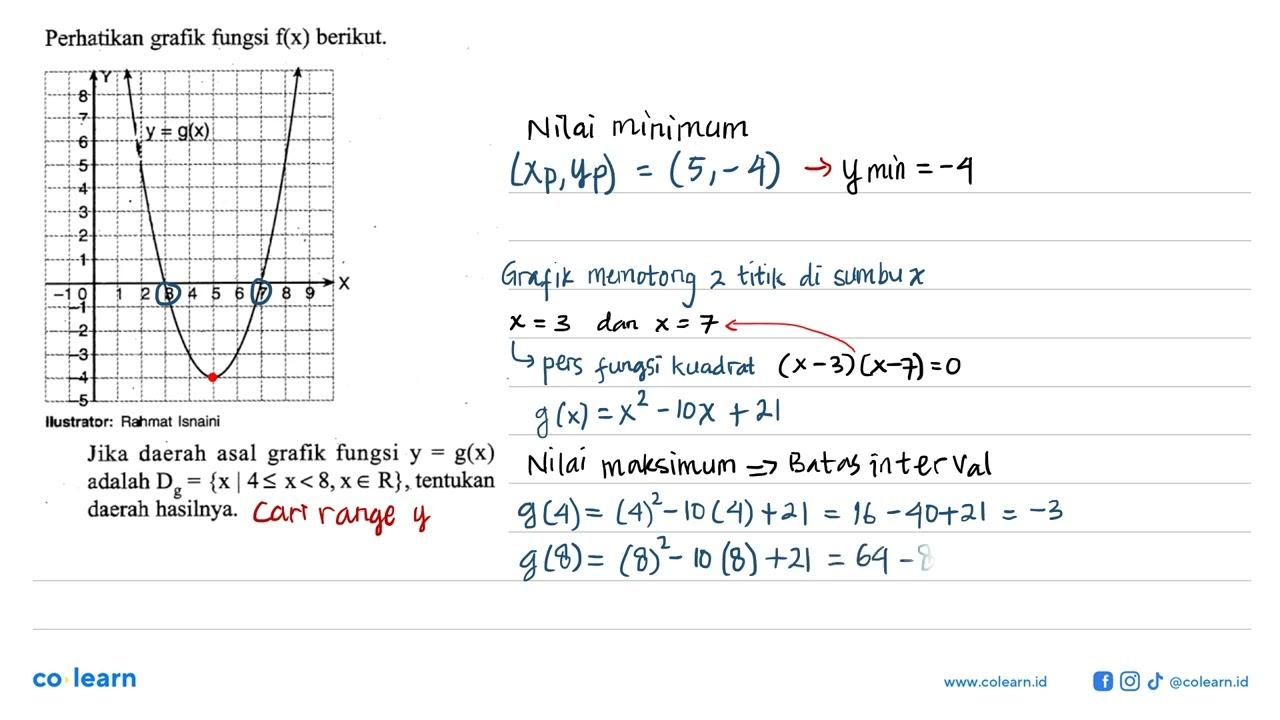 Perhatikan grafik fungsi f(x) berikut.
Y
8
7
6
5
4
3
2
1
y = g(x)
-1 0 1 2 3 4 5 6 7 8 9 X
-1
-2
-3
-4
-5
Ilustrator: Rahmat Isnaini
Jika daerah asal grafik fungsi y = g(x)
adalah D_g = {x | 4 ≤ x < 8, x ∈ R}, tentukan
daerah hasilnya. Cari range y
Nilai minimum
(xp, yp) = (5, -4) → y min = -4
Grafik memotong 2 titik di sumbu x
x = 3 dan x = 7
↳ pers fungsi kuadrat (x-3)(x-7) = 0
g(x) = x² - 10x + 21
Nilai maksimum => Batas interval
g(4) = (4)² - 10(4) + 21 = 16 - 40 + 21 = -3
g(8) = (8)² - 10(8) + 21 = 64 - 8
co learn
www.colearn.id
@colearn.id